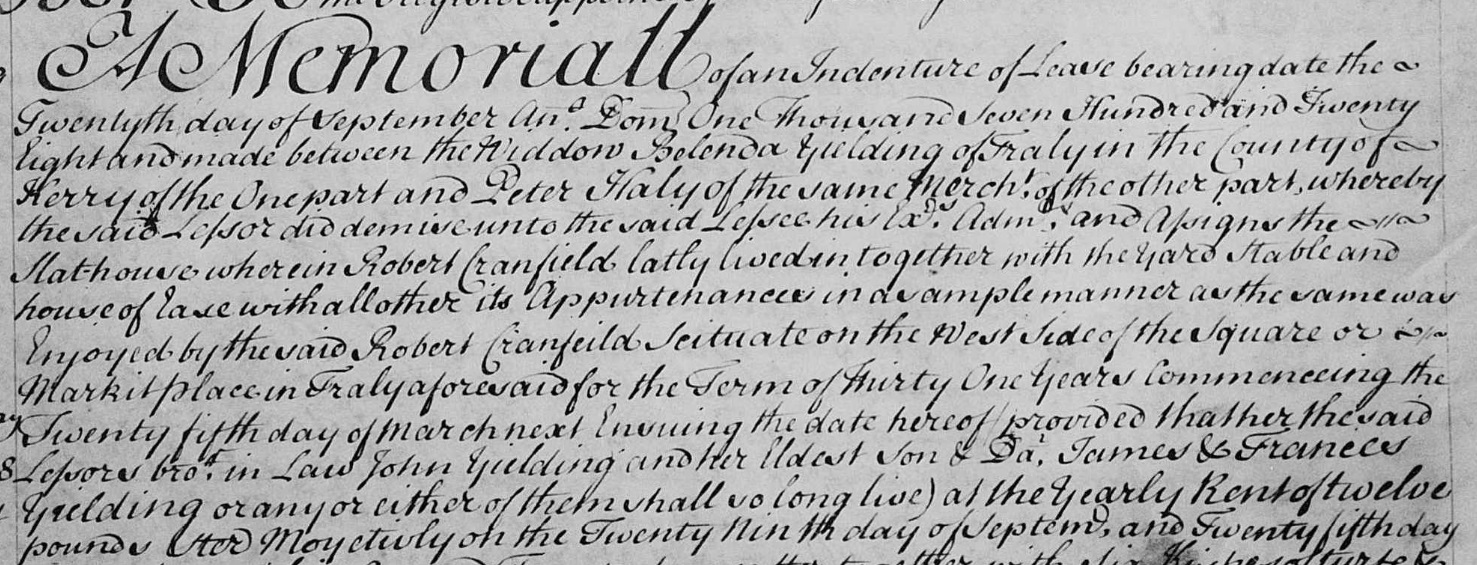 A Memoriall of an Indenture of Lease bearing date the
Twentyth day of September An.o Dom. One Thousand Seven Hundred and Twenty
Eight and made between the Widdow Belenda Yielding of Traly in the County of
Kerry of the One part and Peter Haly of the same Merch.t of the other part, whereby
the said Lessor did demise unto the said Lessee his Ex.rs Adm.rs and Assigns the
Slathouse wherein Robert Cranfield latly lived in together with the Yard Stable and
house of Ease with all other its Appurtenances in as ample manner as the same was
Enjoyed by the said Robert Cranfeild Scituate on the West Side of the Square or
Markit place in Traly aforesaid for the Term of thirty One Years Commenceing the
Twenty fifth day of March next Ensuing the date hereof (provided that her the said
Lessors bro.r in Law John Yielding and her Eldest Son & Da.r James & Frances
Yielding or any or either of them shall so long live) at the Yearly Rent of twelve
pounds Ster Moyetivly on the Twenty Ninth day of Septem.r and Twenty fifth day
together with Six